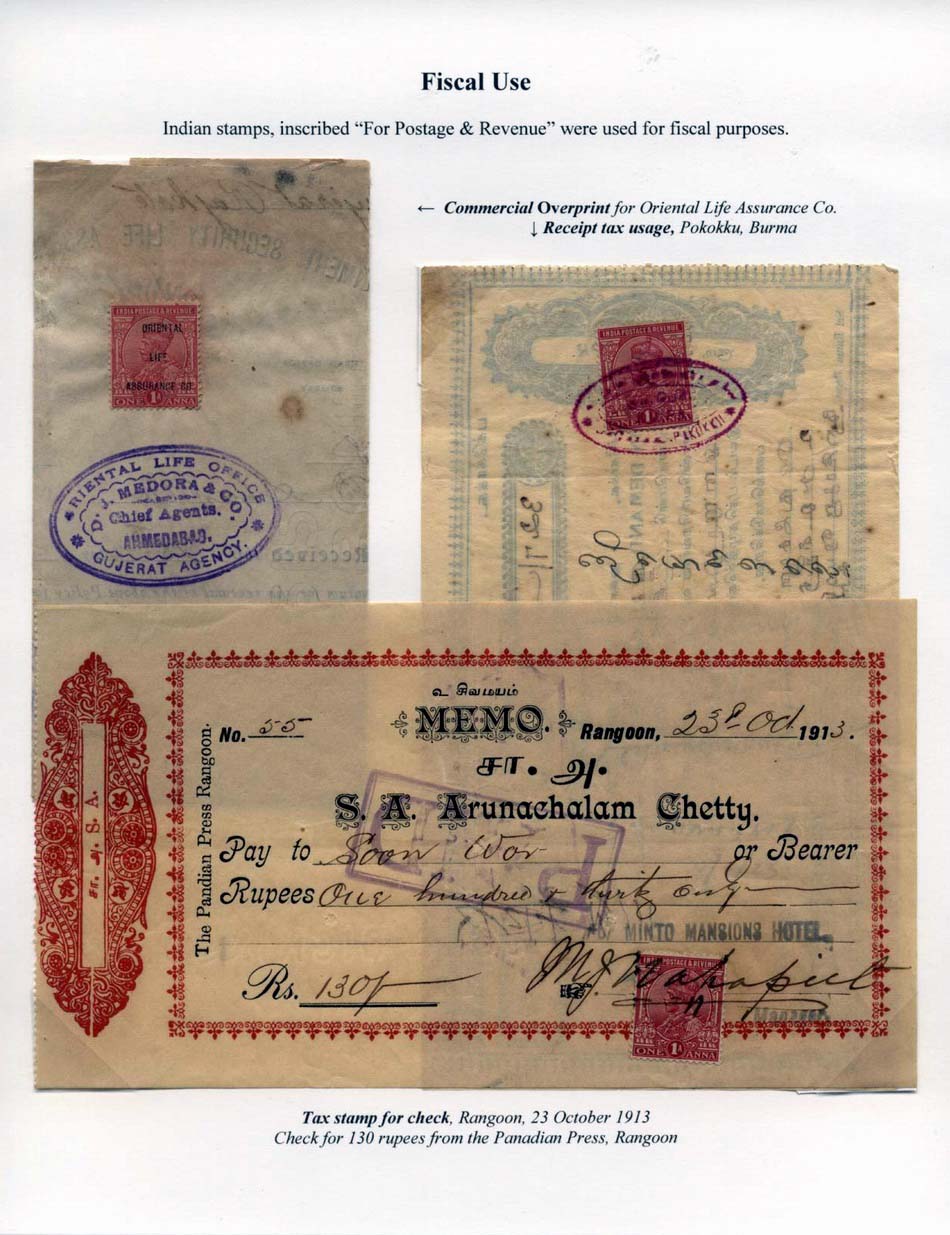 Fiscal Use
Indian stamps, inscribed “For Postage & Revenue” were used for fiscal purposes.
← Commercial Overprint for Oriental Life Assurance Co.
↓ Receipt tax usage, Pokokku, Burma
INDIA POSTAGE & REVENUE
ORIENTAL
LIFE
ASSURANCE CO
ONE 1A ANNA
ORIENTAL LIFE OFFICE
D. J. MEDORA & CO
Chief Agents.
AHMEDABAD.
GUJERAT AGENCY.
INDIA POSTAGE & REVENUE
ONE 1A ANNA
உ சிவமயம்
MEMO.
No. 55
Rangoon, 23rd Oct 1913.
சா. அ.
S. A. Arunachalam Chetty.
Pay to Soon Wor or Bearer
Rupees One hundred & thirty only
MINTO MANSIONS HOTEL.
Rs. 130/-
Manager.
The Pandian Press Rangoon.
சா. அ. S. A.
INDIA POSTAGE & REVENUE
ONE 1A ANNA
Tax stamp for check, Rangoon, 23 October 1913
Check for 130 rupees from the Panadian Press, Rangoon